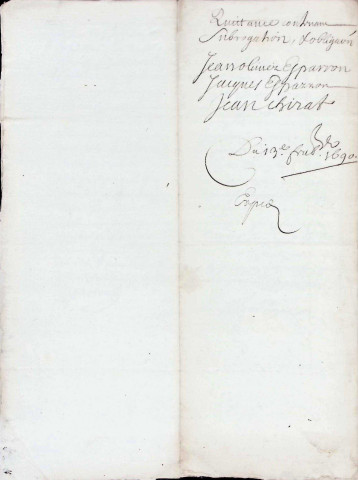 Quittance contenant
Subrogation, & obligaôn
Jean olivier Esparron
Jacques Esparron
Jean chirat
Du 13e. 1690.